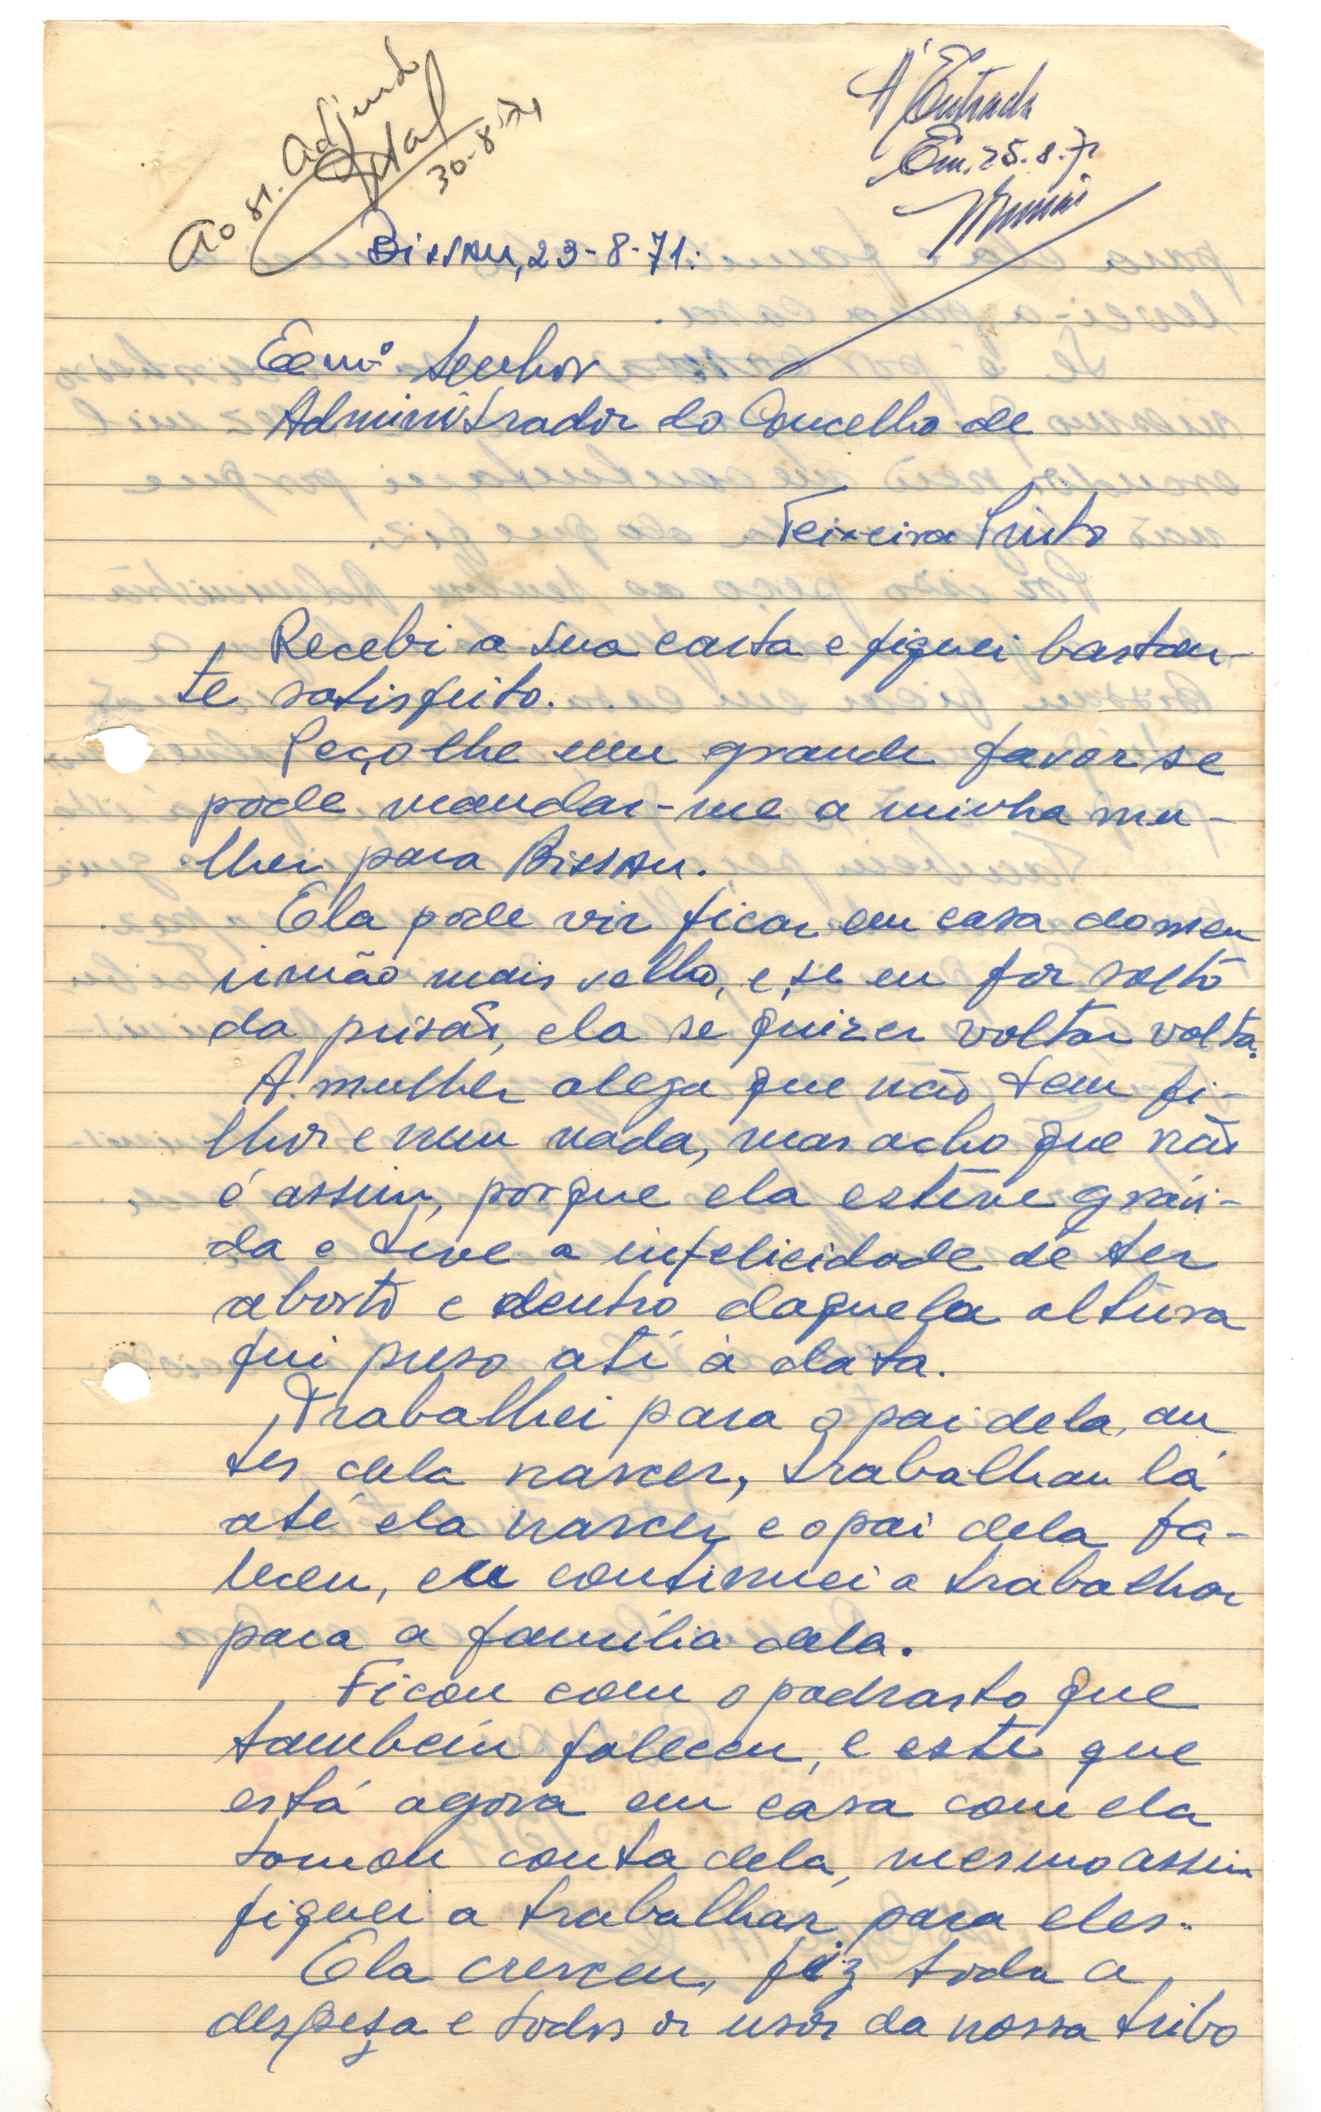 Ao Sr. Adjunto
30-8-71
À Entrada
Em, 25.8.71
Bissau, 23-8-71.
Exmº Senhor
Administrador do Concelho de
Teixeira Pinto
Recebi a sua carta e fiquei bastan-
te satisfeito.
Peço lhe um grande favor se
pode mandar-me a minha mu-
lher para Bissau.
Ela pode vir ficar em casa do meu
irmão mais velho, e se eu for solto
da prisão, ela se quizer voltar volta.
A mulher alega que não tem fi-
lhos e nem nada, mas acho que não
é assim, porque ela esteve grávi-
da e teve a infelicidade de ter
aborto e dentro daquela altura
fui preso até à data.
Trabalhei para o pai dela, an
tes dela nascer, trabalhou lá
até ela nascer e o pai dela fa-
leceu, eu continuei a trabalhar
para a família dela.
Ficou com o padrasto que
também faleceu, e este que
está agora em casa com ela
tomou conta dela, mesmo assim
fiquei a trabalhar para eles.
Ela cresceu, fiz toda a
despesa e todos os usos da nossa tribo